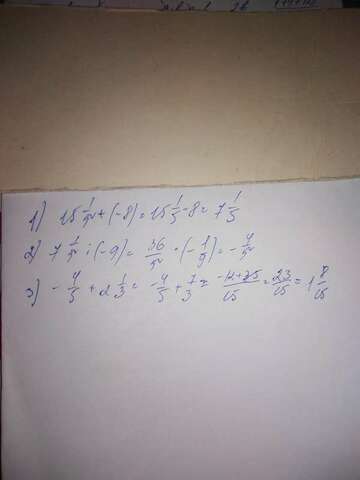 1) 15 1/5 + (-8) = 15 1/5 - 8 = 7 1/5
2) 7 1/5 : (-9) = 36/5 · (-1/9) = -4/5
3) -4/5 + 2 1/3 = -4/5 + 7/3 = -12+35/15 = 23/15 = 1 8/15